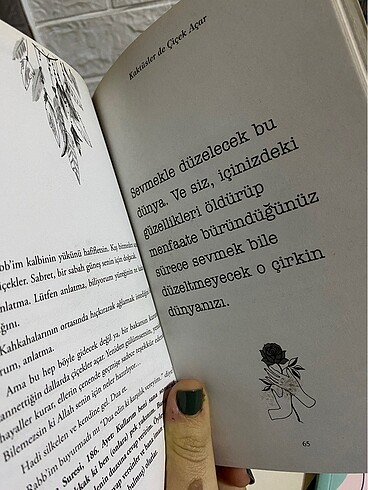 abb'im kalbinin yükünü hafifletsin. Kaç bitmeler
çiçekler. Sabret, bir sabah güneş senin için doğacak.
anlatma. Lütfen anlatma, biliyorum yüreğin ne
ğını.
Kahkahalarının ortasında hıçkırarak ağlamak istediğin
rum, anlatma.
Ama bu hep böyle gidecek değil ya, bir bakarsın
zannettiğin dallarda çiçekler açar. Yeniden gülümsersin,
hayaller kurar, ellerin çenende geçmişe sadece teşekkür
Bilemezsin ki Allah senin için neler hazırlıyor...
Hadi silkelen ve kendine gel. Dua et.
Rabb'im buyurmadı mı "Dua edin ki karşılık vereyim."
Suresi, 186. Ayet
Kaktüsler de Çiçek Açar
Sevmekle düzelecek bu
dünya. Ve siz, içinizdeki
güzellikleri öldürüp
menfaate büründüğünüz
sürece sevmek bile
düzeltmeyecek o çirkin
dünyanızı.
65